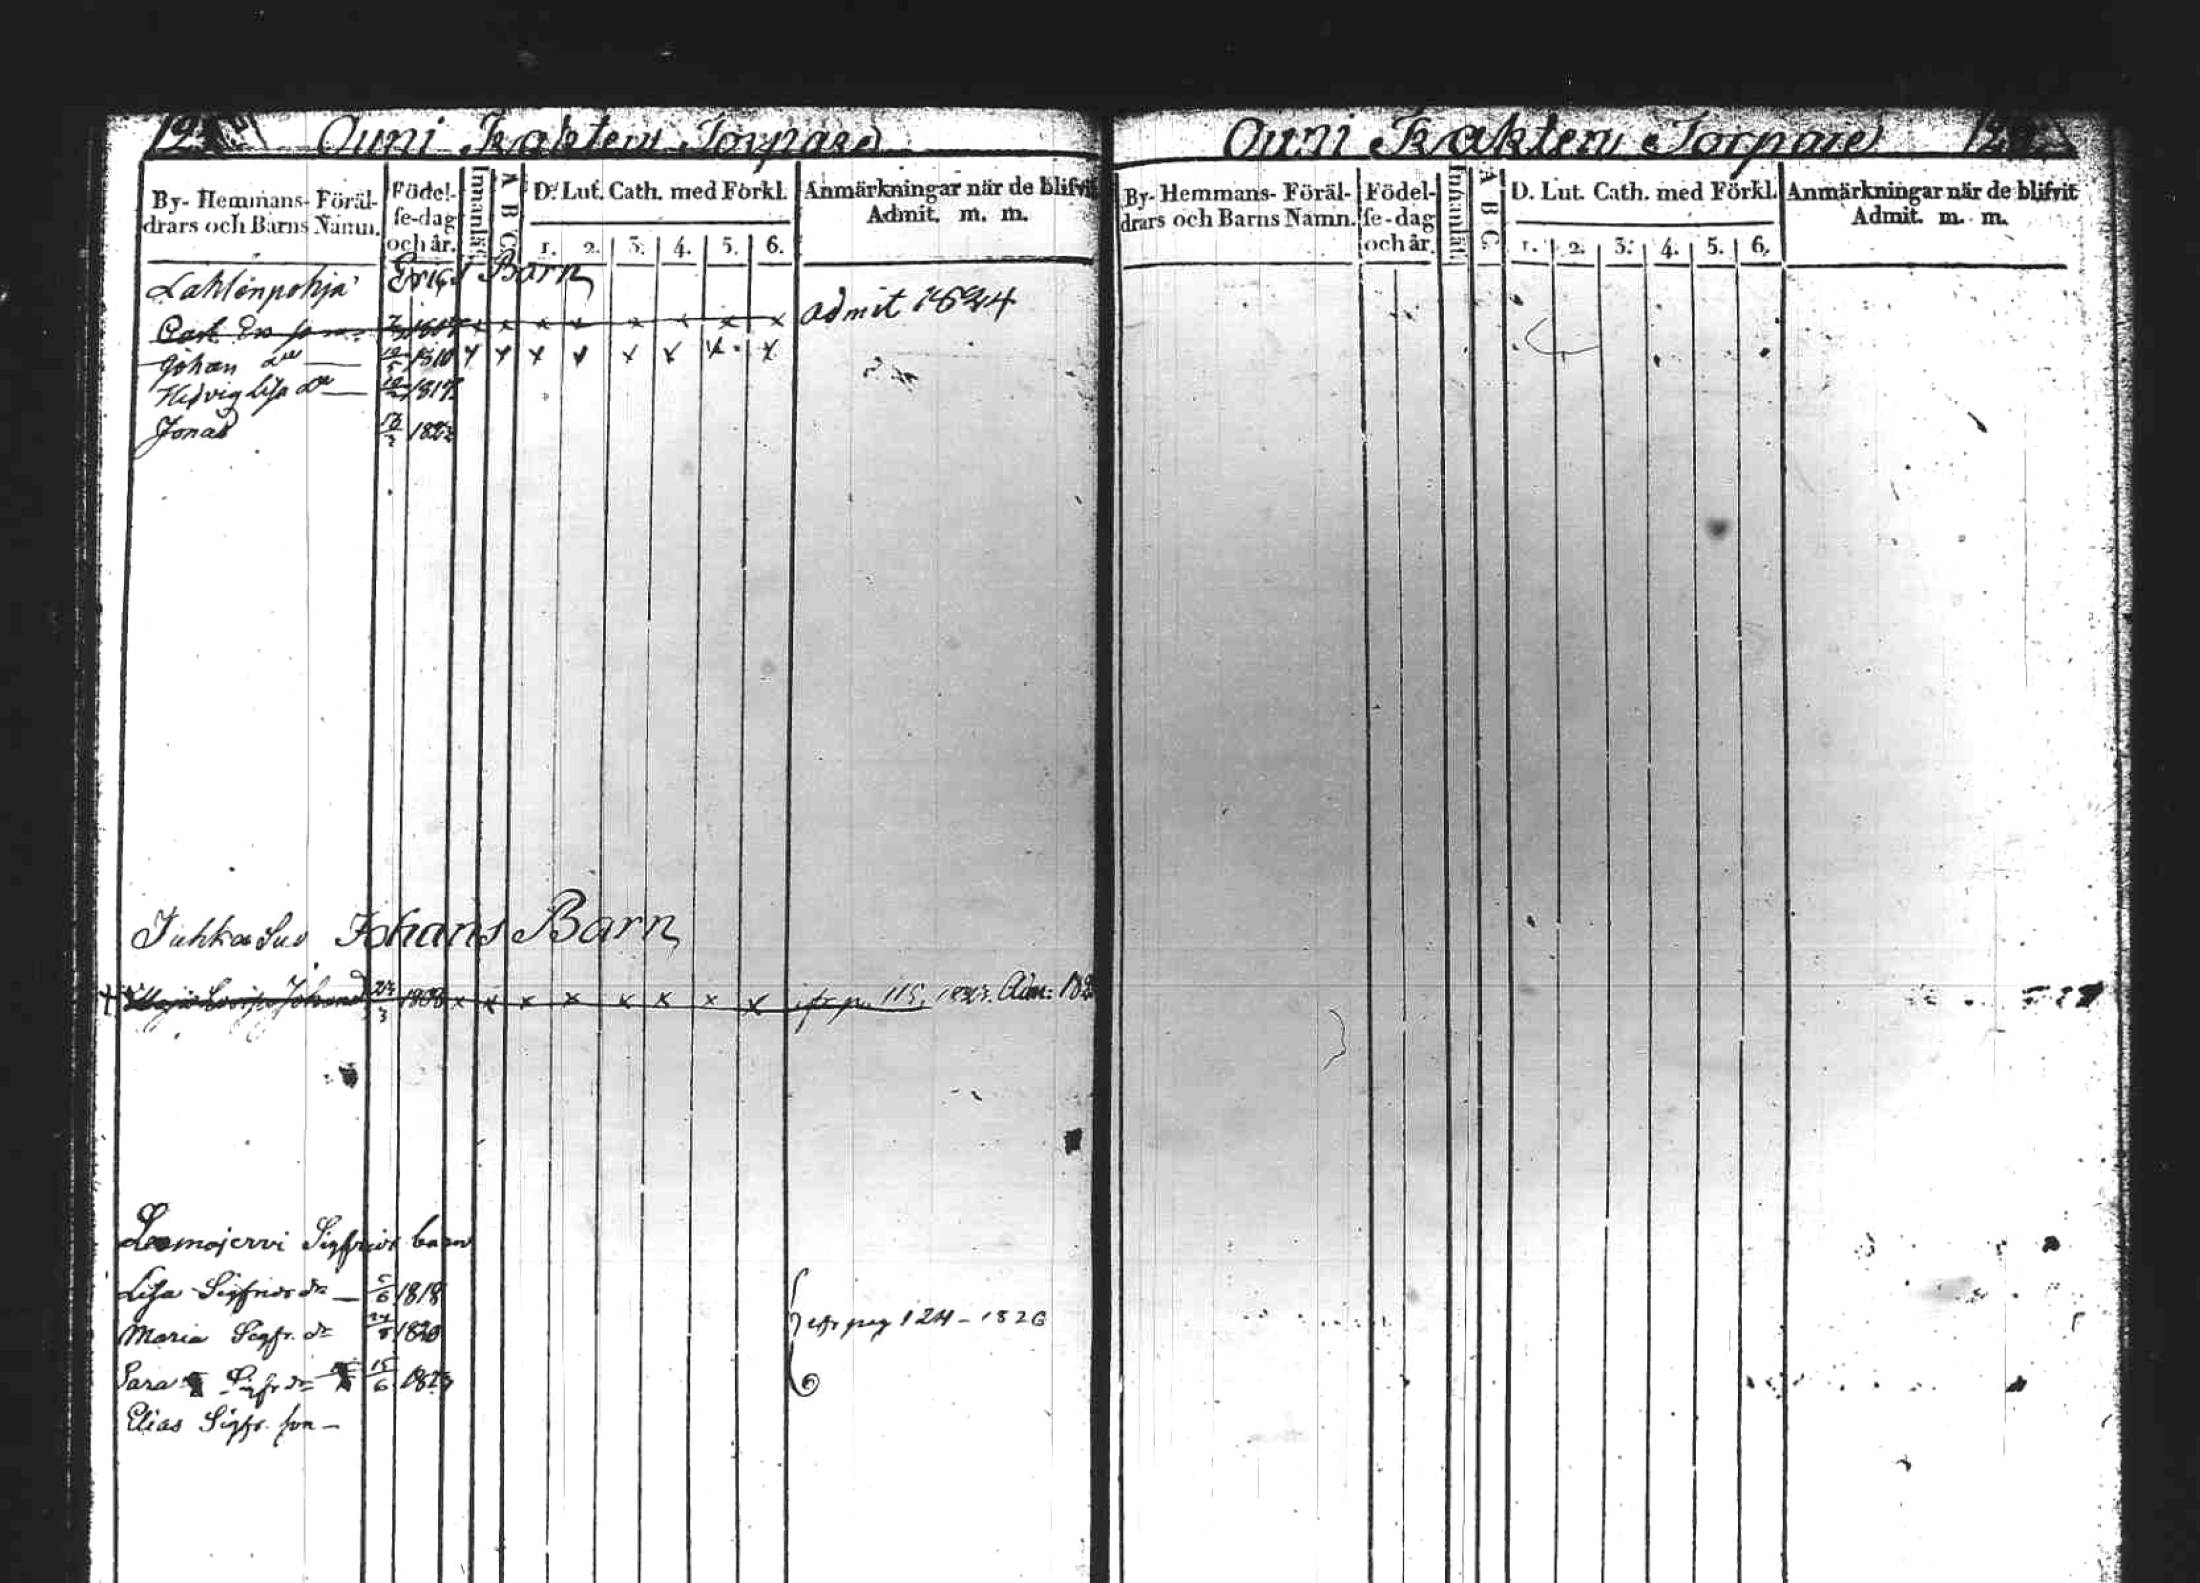 Ouni Trakten Torpare
By- Hemmans- Föräl-
drars och Barns Namn.
Födel-
se-dag
och år.
Innanläs.
A B C.
D. Lut. Cath. med Förkl.
1. 2. 3. 4. 5. 6.
Anmärkningar när de blifvit
Admit. m. m.
Lahlenpohja Erics Barn
Carl Ers son x x x x x x x x admit 1824
Johan Dn 1810 x x x x x x x x
Hedvig Lisa dr 1817
Jonas 1823
Juhkasuo Johans Barn
Maja Lovisa Johans 1808 x x x x x x x x 115, 1823. Adm:
Lomojervi Sigfrids barn
Lisa Sigfrids dr 5/6 1818
Maria Sigfr. dr 1820 pag 124 - 1826
Sara Sigfr dr 15/6 1823
Elias Sigfr. son
Ouni Trakten Torpare
By- Hemmans- Föräl-
drars och Barns Namn.
Födel-
se-dag
och år.
Innanläs.
A B C
D. Lut. Cath. med Förkl.
1. 2. 3. 4. 5. 6.
Anmärkningar när de blifvit
Admit. m. m.